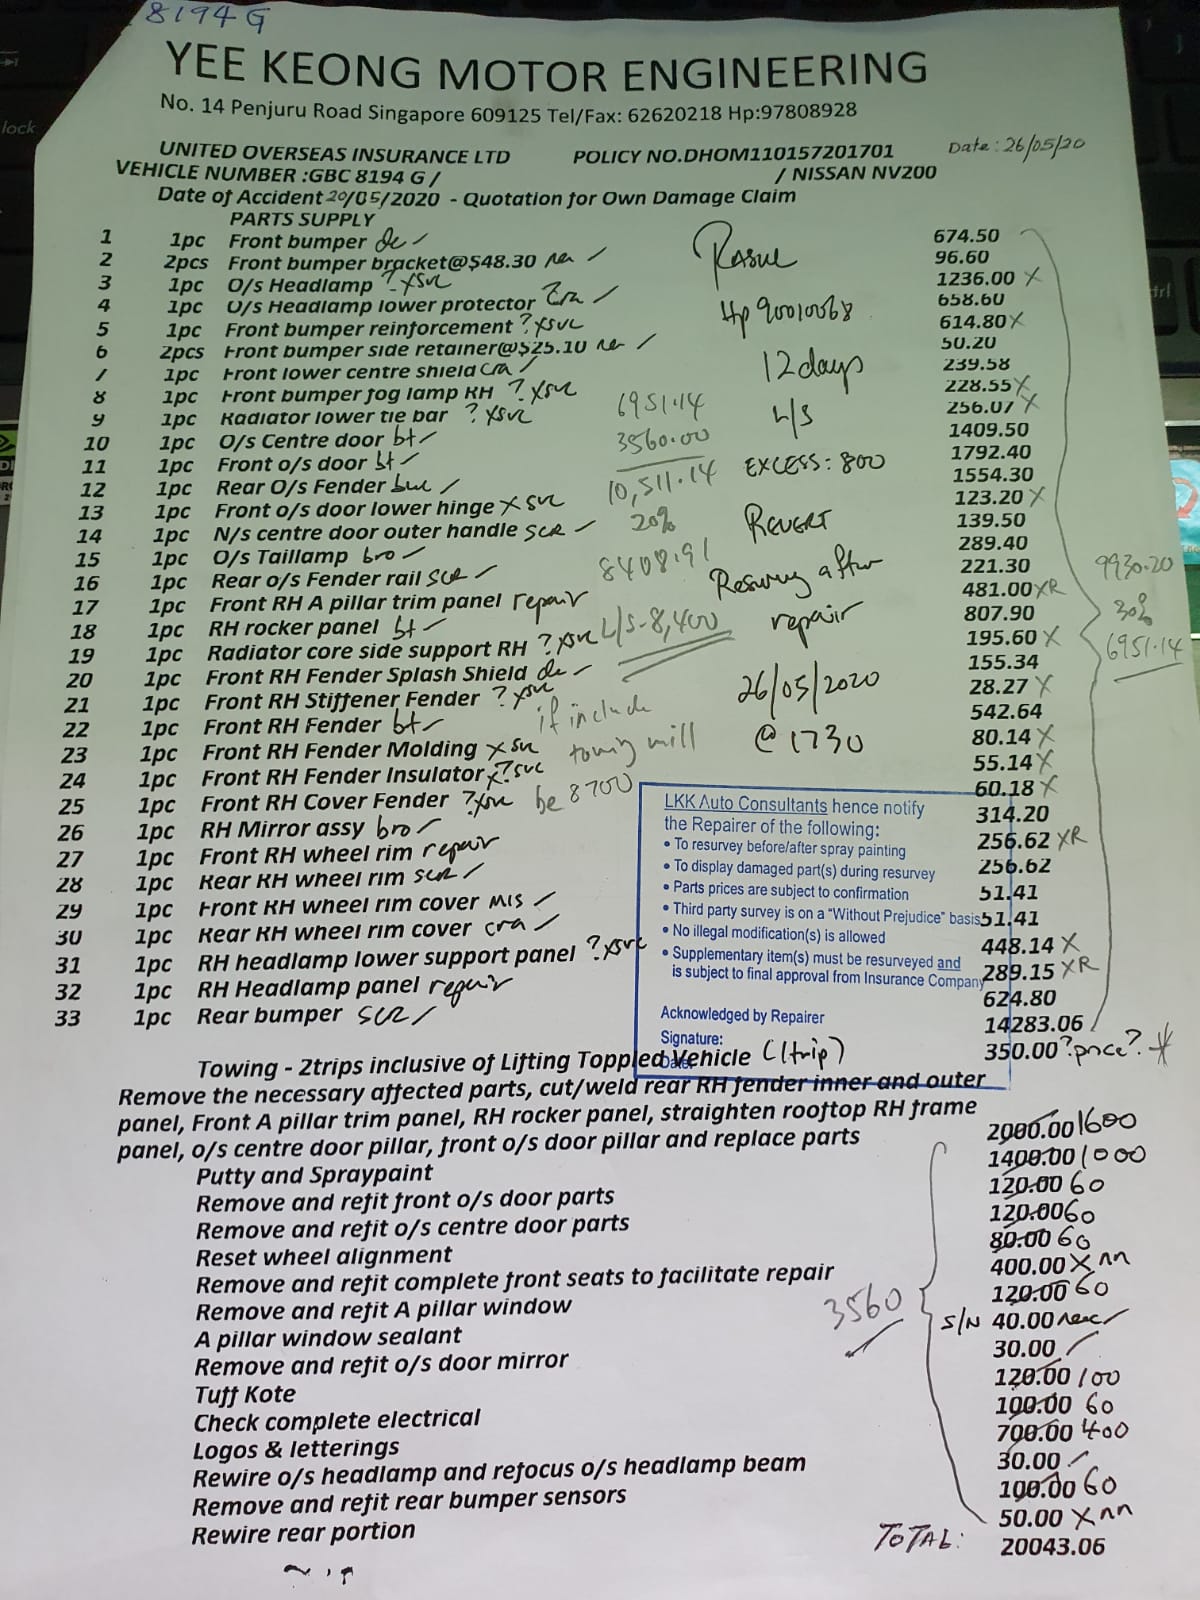 8194G
YEE KEONG MOTOR ENGINEERING
No. 14 Penjuru Road Singapore 609125 Tel/Fax: 62620218 Hp:97808928
UNITED OVERSEAS INSURANCE LTD POLICY NO.DHOM110157201701 Date: 26/05/20
VEHICLE NUMBER :GBC 8194 G / / NISSAN NV200
Date of Accident 20/05/2020 - Quotation for Own Damage Claim
PARTS SUPPLY
1 1pc Front bumper de ✓ 674.50
2 2pcs Front bumper bracket@$48.30 ✓ 96.60
3 1pc O/s Headlamp ? x svc 1236.00 X
4 1pc O/s Headlamp lower protector cra ✓ 658.60
5 1pc Front bumper reinforcement ? x svc 614.80 X
6 2pcs Front bumper side retainer@$25.10 ✓ 50.20
7 1pc Front lower centre shield cra ✓ 239.58
8 1pc Front bumper fog lamp RH ? x svc 228.55 X
9 1pc Radiator lower tie bar ? x svc 256.07 X
10 1pc O/s Centre door bt ✓ 1409.50
11 1pc Front o/s door bt ✓ 1792.40
12 1pc Rear O/s Fender ✓ 1554.30
13 1pc Front o/s door lower hinge x svc 123.20 X
14 1pc N/s centre door outer handle scr ✓ 139.50
15 1pc O/s Taillamp bro ✓ 289.40
16 1pc Rear o/s Fender rail scr ✓ 221.30
17 1pc Front RH A pillar trim panel repair 481.00 XR
18 1pc RH rocker panel bt ✓ 807.90
19 1pc Radiator core side support RH ? x svc 195.60 X
20 1pc Front RH Fender Splash Shield de ✓ 155.34
21 1pc Front RH Stiffener Fender ? x svc 28.27 X
22 1pc Front RH Fender bt ✓ 542.64
23 1pc Front RH Fender Molding x svc 80.14 X
24 1pc Front RH Fender Insulator x ? svc 55.14 X
25 1pc Front RH Cover Fender ? x svc 60.18 X
26 1pc RH Mirror assy bro ✓ 314.20
27 1pc Front RH wheel rim repair 256.62 XR
28 1pc Rear RH wheel rim scr ✓ 256.62
29 1pc Front RH wheel rim cover mis ✓ 51.41
30 1pc Rear RH wheel rim cover cra ✓ 51.41
31 1pc RH headlamp lower support panel ? x svc 448.14 X
32 1pc RH Headlamp panel repair 289.15 XR
33 1pc Rear bumper scr ✓ 624.80
14283.06
Rasul
Hp 90010068
12 days
L/S
EXCESS: 800
REVERT
Resurvey after
repair
26/05/2020
@ 1730
6951.14
3560.00
10,511.14
20%
8408.91
L/S - 8,400
if include
towing will
be 8700
9930.20
30%
6951.14
LKK Auto Consultants hence notify
the Repairer of the following:
• To resurvey before/after spray painting
• To display damaged part(s) during resurvey
• Parts prices are subject to confirmation
• Third party survey is on a "Without Prejudice" basis
• No illegal modification(s) is allowed
• Supplementary item(s) must be resurveyed and
is subject to final approval from Insurance Company
Acknowledged by Repairer
Signature:
Date:
Towing - 2trips inclusive of Lifting Toppled Vehicle (1 trip) 350.00 ? price?
Remove the necessary affected parts, cut/weld rear RH fender inner and outer
panel, Front A pillar trim panel, RH rocker panel, straighten rooftop RH frame
panel, o/s centre door pillar, front o/s door pillar and replace parts 2000.00 1600
Putty and Spraypaint 1400.00 1000
Remove and refit front o/s door parts 120.00 60
Remove and refit o/s centre door parts 120.00 60
Reset wheel alignment 80.00 60
Remove and refit complete front seats to facilitate repair 400.00 X nn
Remove and refit A pillar window 120.00 60
A pillar window sealant S/N 40.00 nec ✓
Remove and refit o/s door mirror 30.00 ✓
Tuff Kote 120.00 100
Check complete electrical 100.00 60
Logos & letterings 700.00 400
Rewire o/s headlamp and refocus o/s headlamp beam 30.00 ✓
Remove and refit rear bumper sensors 100.00 60
Rewire rear portion 50.00 X nn
3560 ✓
TOTAL: 20043.06